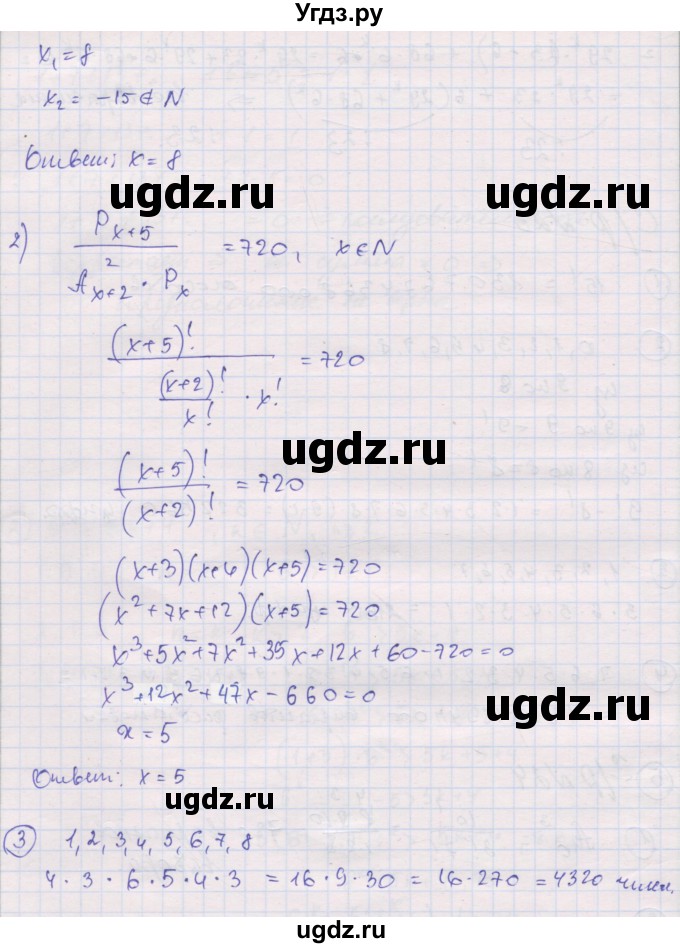 Угдз.ру
x₁ = 8
x₂ = -15 ∉ N
Ответ: x = 8
ugdz.ru ugdz.ru
2) P_{x+5} / (A²_{x+2} · P_x) = 720, x ∈ N
(x+5)! / ((x+2)!/x! · x!) = 720
ugdz.ru
(x+5)! / (x+2)! = 720
ugdz.ru
(x+3)(x+4)(x+5)=720
(x²+7x+12)(x+5)=720
x³+5x²+7x²+35x+12x+60-720=0
x³+12x²+47x-660=0
ugdz.ru ugdz.ru
x = 5
Ответ: x = 5
ugdz.ru
3 1, 2, 3, 4, 5, 6, 7, 8
4 · 3 · 6 · 5 · 4 · 3 = 16 · 9 · 30 = 16 · 270 = 4320 чисел.